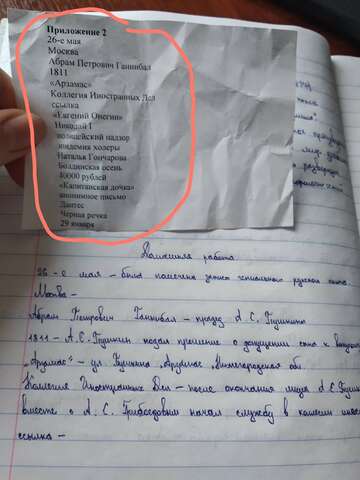 Приложение 2
26-е мая
Москва
Абрам Петрович Ганнибал
1811
«Арзамас»
Коллегия Иностранных Дел
ссылка
«Евгений Онегин»
Николай I
полицейский надзор
эпидемия холеры
Наталья Гончарова
Болдинская осень
40000 рублей
«Капитанская дочка»
анонимное письмо
Дантес
Черная речка
29 января
Домашняя работа
26 - е мая - была помечена запись гениального русского
Москва -
Абрам Петрович Ганнибал - прадед А.С. Пушкина
1811 - А.С. Пушкин подал прошение о допущении его к
„Арзамас" - ул. Пушкина, Арзамас, Нижегородская об
Коллегия Иностранных Дел - после окончания лицея А.С. Пушк
вместе с А.С. Грибоедовым начал службу в коллегии инос
ссылка -